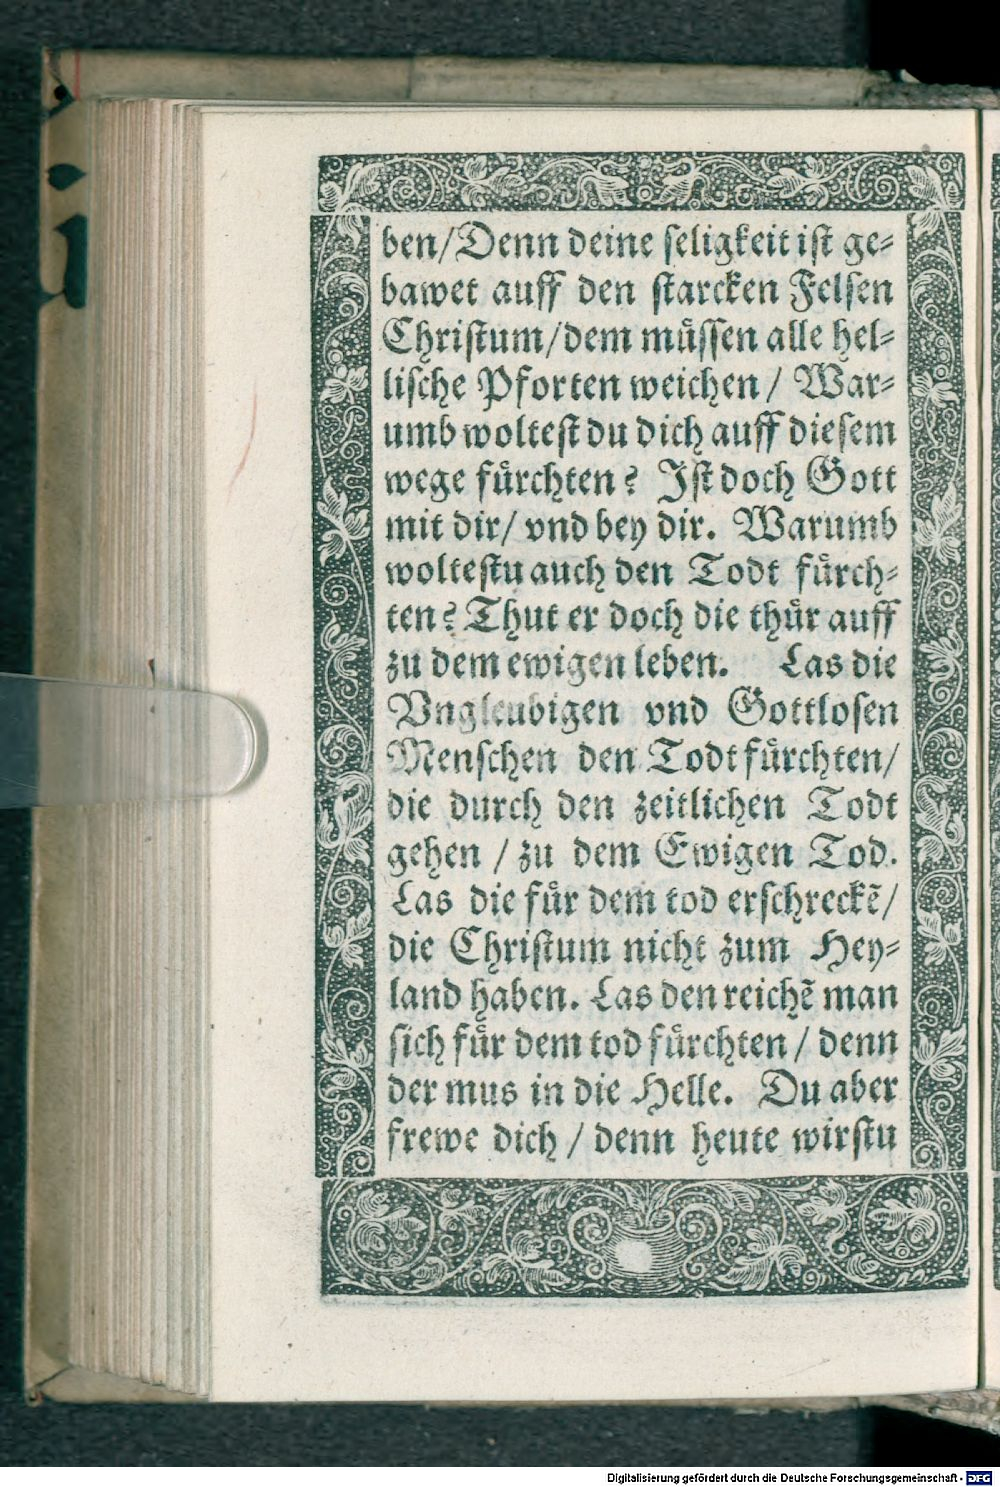 ben/Denn deine seligkeit ist ge-
bawet auff den starcken Felsen
Christum/dem müssen alle hel-
lische Pforten weichen/ War-
umb woltest du dich auff diesem
wege fürchten? Ist doch Gott
mit dir/ vnd bey dir. Warumb
woltestu auch den Todt fürch-
ten? Thut er doch die thür auff
zu dem ewigen leben. Las die
Vngleubigen vnd Gottlosen
Menschen den Todt fürchten/
die durch den zeitlichen Todt
gehen / zu dem Ewigen Tod.
Las die für dem tod erschreckẽ/
die Christum nicht zum Hey-
land haben. Las den reichẽ man
sich für dem tod fürchten / denn
der mus in die Helle. Du aber
frewe dich / denn heute wirstu
Digitalisierung gefördert durch die Deutsche Forschungsgemeinschaft - DFG